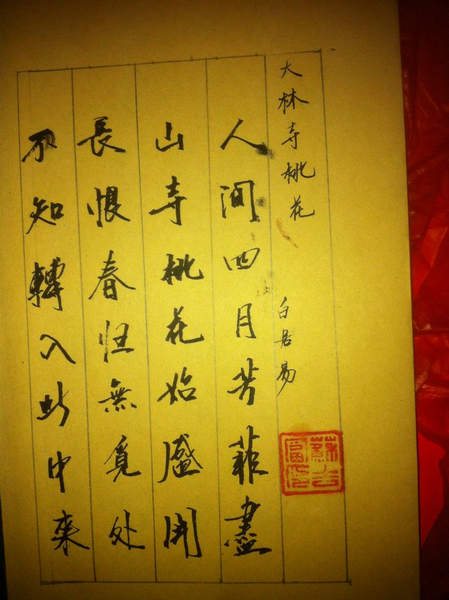 大林寺桃花
白居易
人间四月芳菲盡
山寺桃花始盛開
長恨春归無覓处
不知轉入此中来